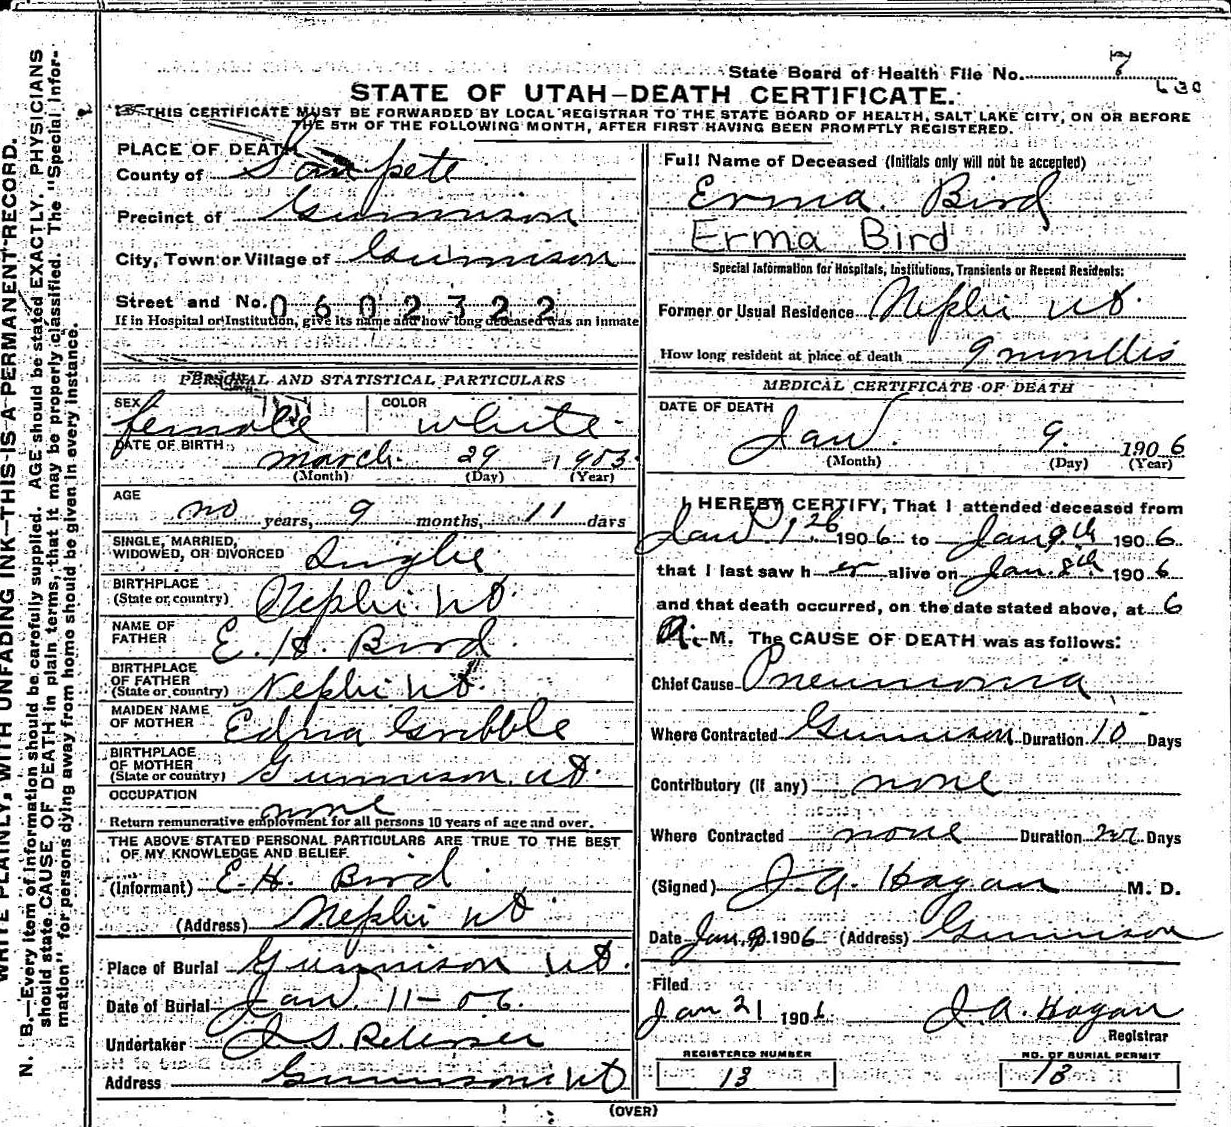 State Board of Health File No. 7
630
STATE OF UTAH—DEATH CERTIFICATE.
THIS CERTIFICATE MUST BE FORWARDED BY LOCAL REGISTRAR TO THE STATE BOARD OF HEALTH, SALT LAKE CITY, ON OR BEFORE
THE 5TH OF THE FOLLOWING MONTH, AFTER FIRST HAVING BEEN PROMPTLY REGISTERED.
WRITE PLAINLY, WITH UNFADING INK—THIS IS A PERMANENT RECORD.
N. B.—Every item of information should be carefully supplied. AGE should be stated EXACTLY. PHYSICIANS
should state CAUSE OF DEATH in plain terms, that it may be properly classified. The "Special Infor-
mation" for persons dying away from home should be given in every instance.
PLACE OF DEATH
County of Sanpete
Precinct of Gunnison
City, Town or Village of Gunnison
Street and No. 0602322
If in Hospital or Institution, give its name and how long deceased was an inmate
PERSONAL AND STATISTICAL PARTICULARS
SEX female COLOR white
DATE OF BIRTH March 29 1903
(Month) (Day) (Year)
AGE
no years, 9 months, 11 days
SINGLE, MARRIED,
WIDOWED, OR DIVORCED Single
BIRTHPLACE
(State or country) Nephi Ut.
NAME OF
FATHER E. H. Bird
BIRTHPLACE
OF FATHER
(State or country) Nephi Ut.
MAIDEN NAME
OF MOTHER Edna Gribble
BIRTHPLACE
OF MOTHER
(State or country) Gunnison Ut.
OCCUPATION none
Return remunerative employment for all persons 10 years of age and over.
THE ABOVE STATED PERSONAL PARTICULARS ARE TRUE TO THE BEST
OF MY KNOWLEDGE AND BELIEF.
(Informant) E. H. Bird
(Address) Nephi Ut
Place of Burial Gunnison Ut.
Date of Burial Jan 11-06.
Undertaker J. S.
Address Gunnison Ut
Full Name of Deceased (Initials only will not be accepted)
Erma Bird
Erma Bird
Special Information for Hospitals, Institutions, Transients or Recent Residents:
Former or Usual Residence Nephi Ut.
How long resident at place of death 9 months
MEDICAL CERTIFICATE OF DEATH
DATE OF DEATH
Jan. 9. 1906
(Month) (Day) (Year)
I HEREBY CERTIFY, That I attended deceased from
Jan 1906 to Jan 9th 1906
that I last saw her alive on Jan. 8th 1906
and that death occurred, on the date stated above, at 6
M. The CAUSE OF DEATH was as follows:
Chief Cause Pneumonia
Where Contracted Gunnison Duration 10 Days
Contributory (if any) none
Where Contracted none Duration Days
(Signed) J. A. Hagan M. D.
Date Jan. 9 1906 (Address) Gunnison
Filed
Jan 21 1906 J. A. Hagan
Registrar
REGISTERED NUMBER
13
NO. OF BURIAL PERMIT
13
(OVER)